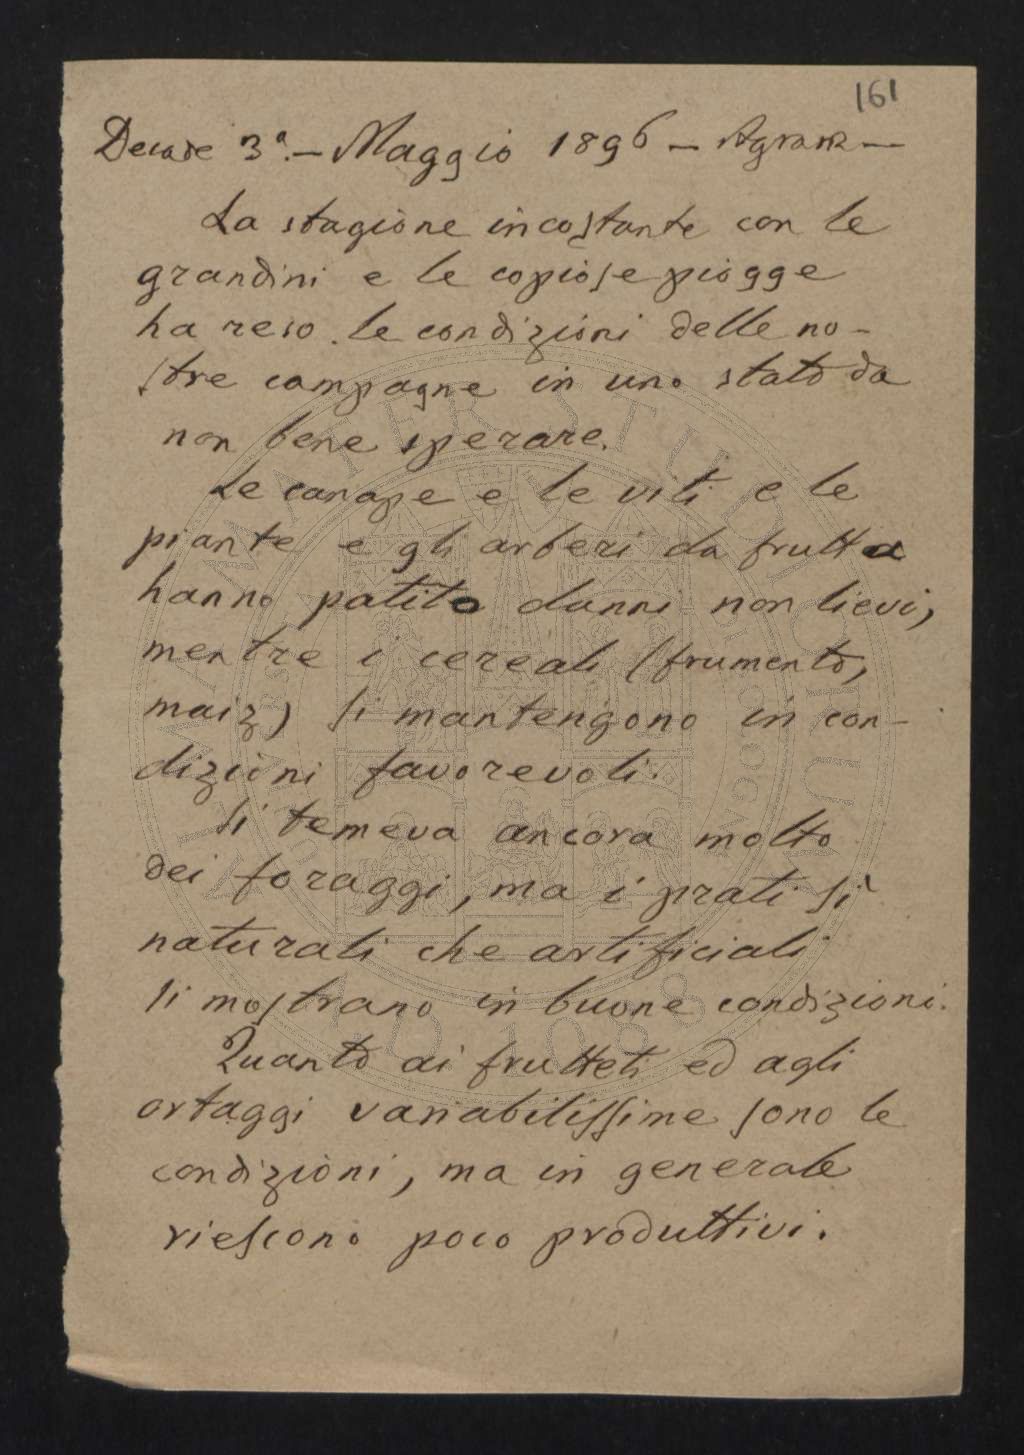 161
Decade 3ª. — Maggio 1896 —
La stagione incostante con le
grandini e le copiose piogge
ha reso le condizioni delle no-
stre campagne in uno stato da
non bene sperare.
Le canape e le viti e le
piante e gli arberi da frutta
hanno patito danni non lievi,
mentre i cereali (frumento,
maiz) si mantengono in con-
dizioni favorevoli.
Si temeva ancora molto
dei foraggi, ma i prati sì
naturali che artificiali
si mostrano in buone condizioni.
Quanto ai frutteti ed agli
ortaggi variabilissime sono le
condizioni, ma in generale
riescono poco produttivi.
ALMA MATER STUDIORUM
A.D. 1088